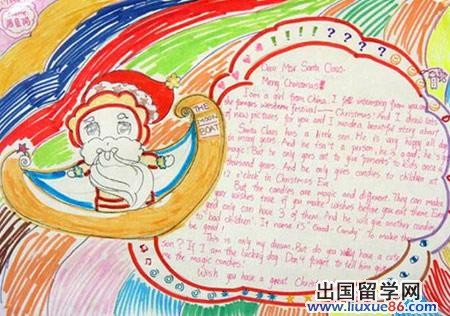 ! ! ! ! ? ? ? ?
Dear Miss Santa Claus.
Merry Christmas!!!
I am a girl from China. I felt interesting from you and
the famous western festival —— Christmas! And I drew lots
of new pictures for you and I wrote a beautiful story about
Santa Claus has a little son. He is very happy all day
years. And he isn't a person, he is a god; he's
magic! But he only goes out to give presents to kids once
thousand years. And he only gives candies to children at
12 o'clock in Christmas Eve.
But the candies are magic and different. They can make
your wishes true if you make wishes before you eat them. Every
good only can have 3 of them. And he will give another candies
to bad children. It name is "Good-Candy". To make them
be good!
This is only my dream. But do you really have a cute
son? If I am the lucky dog, Don't forget to tell him give
me the magic candies.
Wish you have a great Chri
THE
MOON
BOAT
出国留学网
www.liuxue86.com